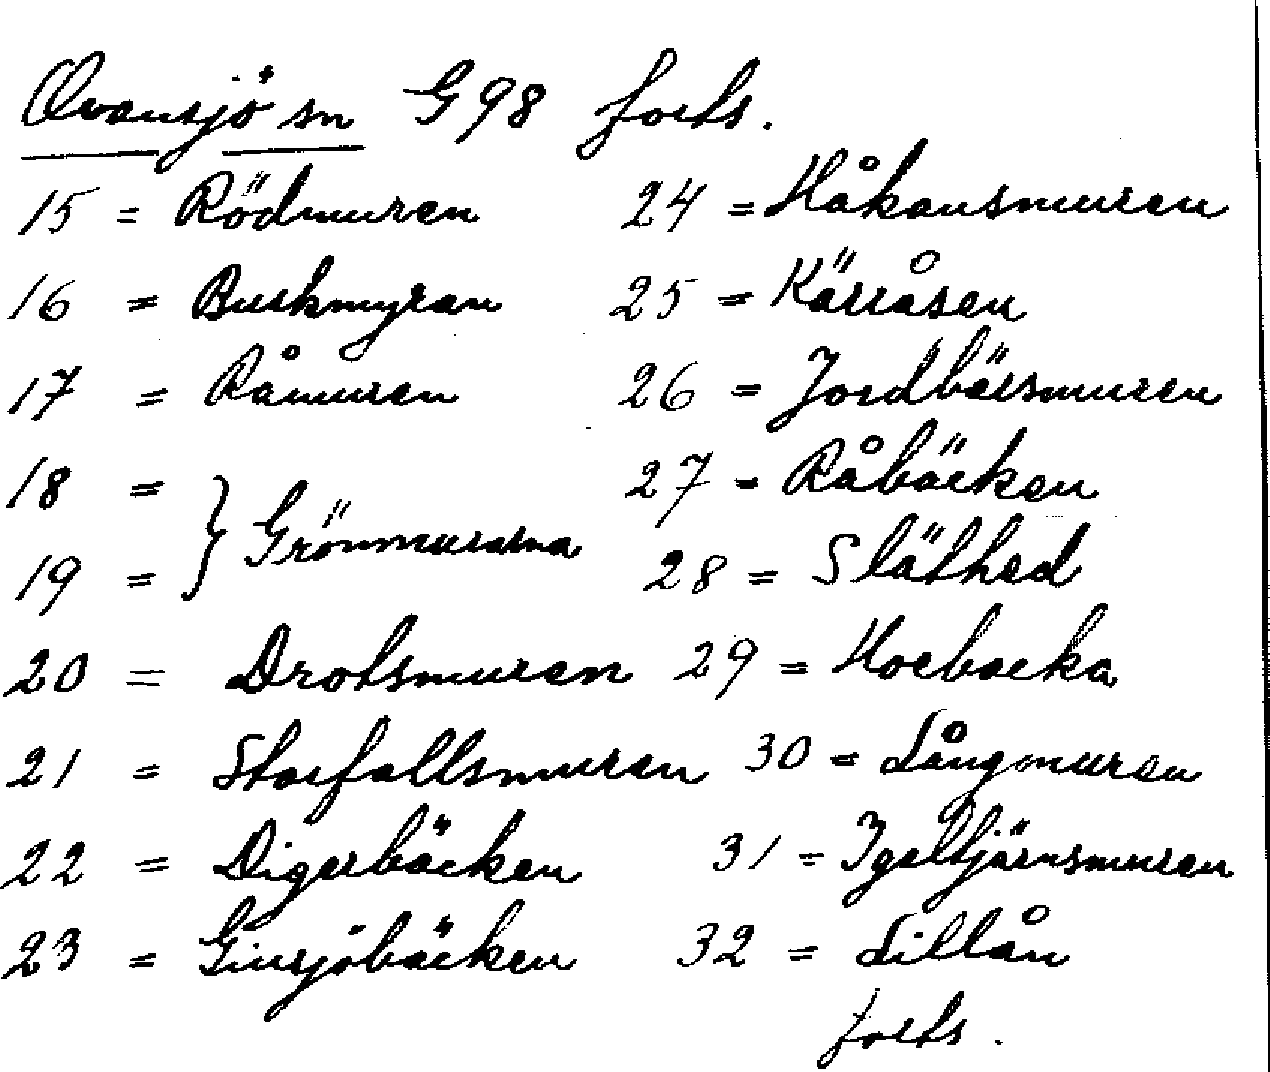 Ovansjö sn G 98 forts.
15 = Rödmuren
16 = Buskmyran
17 = Råmuren
18 =
19 = } Grönmurarna
20 = Drotsmuren
21 = Storfallsmuren
22 = Digerbäcken
23 = Ginsjöbäcken
24 = Håkansmuren
25 = Kärråsen
26 = Jordbärsmuren
27 = Råbäcken
28 = Släthed
29 = Hocbacka
30 = Långmuren
31 = Igeltjärnsmuren
32 = Lillån
forts.